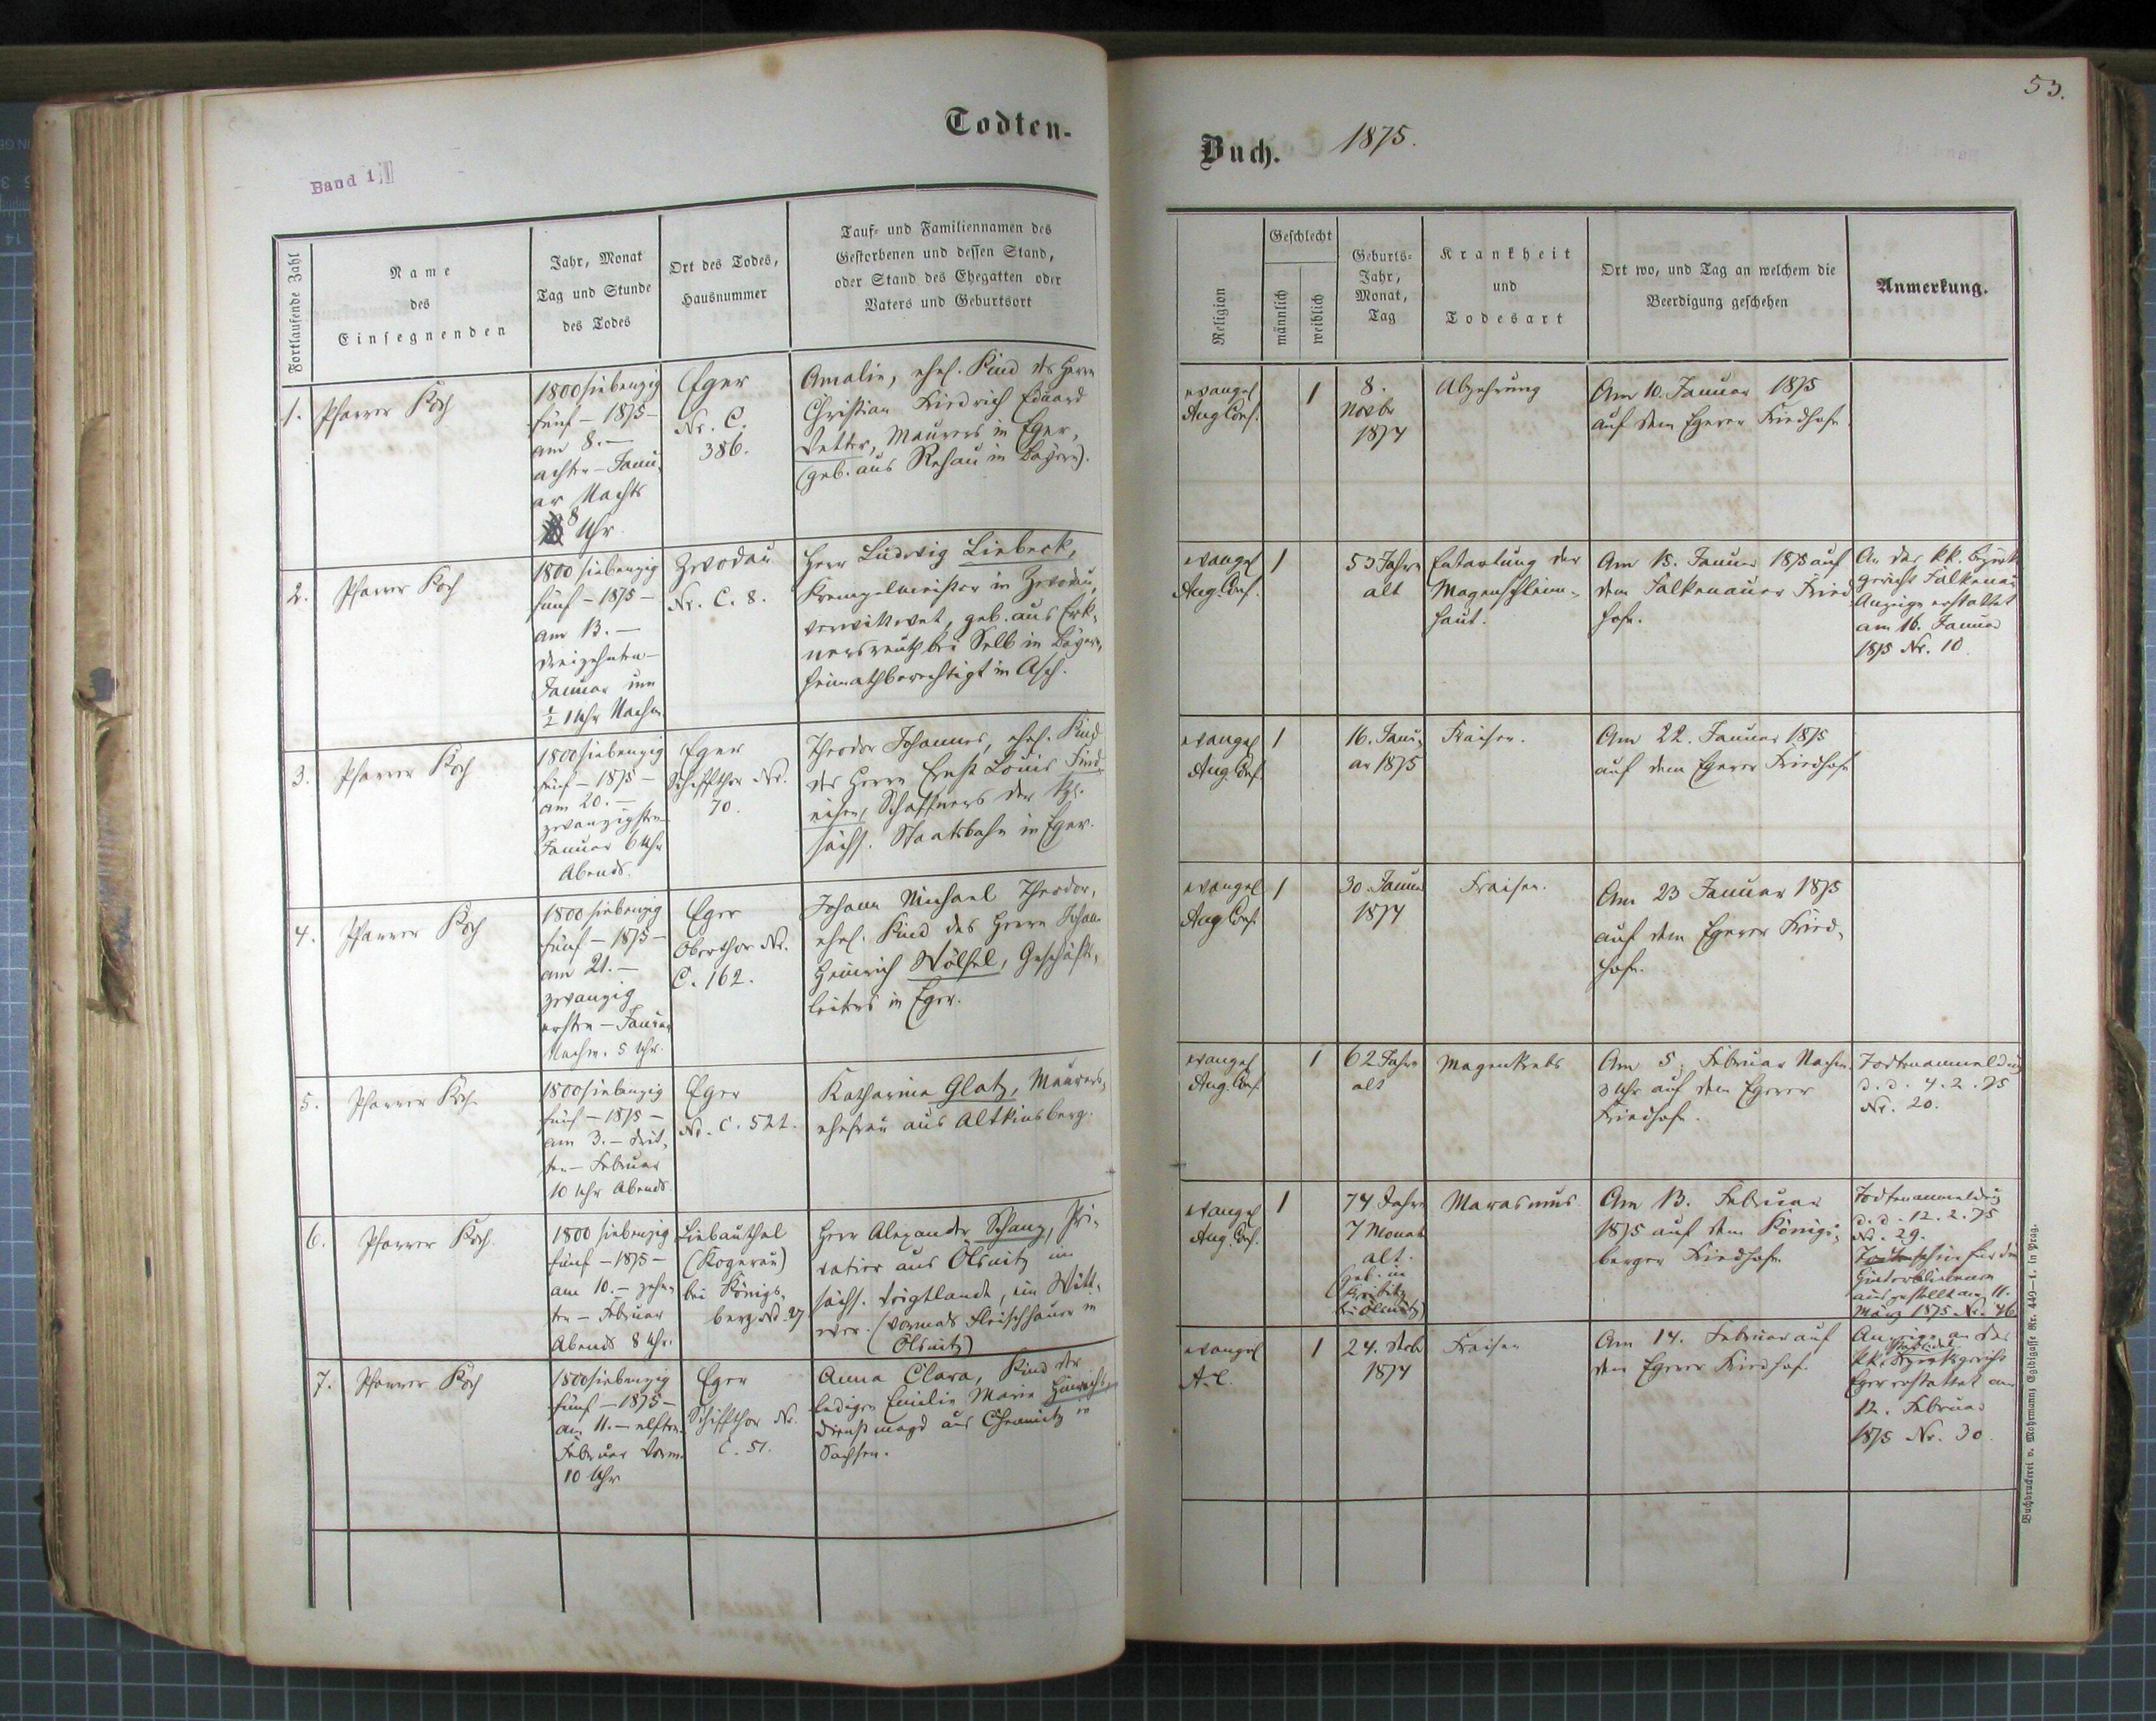 53.
Todten-
Buch. 1875.
Band 1
Fortlaufende Zahl
Name
des
Einsegnenden
Jahr, Monat
Tag und Stunde
des Todes
Ort des Todes,
Hausnummer
Tauf- und Familiennamen des
Gestorbenen und dessen Stand,
oder Stand des Ehegatten oder
Vaters und Geburtsort
Religion
Geschlecht
männlich
weiblich
Geburts-
Jahr,
Monat,
Tag
Krankheit
und
Todesart
Ort wo, und Tag an welchem die
Beerdigung geschehen
Anmerkung.
1.
Pfarrer Koch
1800 siebenzig
fünf – 1875 –
am 8. –
achten – Janu-
ar Nachts
8 Uhr.
Eger
Nr. C.
386.
Amalie, ehel. Kind des Herrn
Christian Friedrich Eduard
Vetter, Maurers in Eger,
(geb. aus Rehau in Bayern).
evangel
Aug. Conf.
1
8.
Novbr
1874
Abzehrung
Am 10. Januar 1875
auf dem Egerer Friedhofe.
2.
Pfarrer Koch
1800 siebenzig
fünf – 1875 –
am 13. –
dreizehnten –
Januar um
½ 1 Uhr Nachm.
Zwodau
Nr. C. 8.
Herr Ludwig Liebeck,
Krempelmeister in Zwodau,
verwittwet, geb. aus Erk-
nersreuth bei Selb in Bayern,
heimathberechtigt in Asch.
evangel
Aug. Conf.
1
53 Jahre
alt
Entartung der
Magenschleim-
haut.
Am 15. Januar 1875 auf
dem Falkenauer Fried
hofe.
An das kk. Bezirks
gericht Falkenau
Anzeige erstattet
am 16. Januar
1875 Nr. 10.
3.
Pfarrer Koch
1800 siebenzig
fünf – 1875 –
am 20. –
zwanzigsten
Januar 6 Uhr
Abends.
Eger
Schiffthor Nr.
70.
Theodor Johannes, ehel. Kind
des Herrn Ernst Louis Find-
eisen, Schaffners der kgl.
sächs. Staatsbahn in Eger.
evangel
Aug. Conf.
1
16. Janu-
ar 1875
Fraisen.
Am 22. Januar 1875
auf dem Egerer Friedhofe
4.
Pfarrer Koch
1800 siebenzig
fünf – 1875 –
am 21. –
zwanzig
ersten – Januar
Nachm. 5 Uhr.
Eger
Oberthor Nr.
C. 162.
Johann Michael Theodor,
ehel. Kind des Herrn Johann
Heinrich Wölfel, Geschäfts-
leiters in Eger.
evangel
Aug. Conf.
1
30. Januar
1874
Fraisen.
Am 23 Januar 1875
auf dem Egerer Fried-
hofe.
5.
Pfarrer Koch
1800 siebenzig
fünf – 1875 –
am 3. – drit-
ten – Februar
10 Uhr Abends.
Eger
Nr. C. 522.
Katharina Glatz, Maurers-
ehefrau aus Altkinsberg.
evangel
Aug. Conf.
1
62 Jahre
alt
Magenkrebs
Am 5. Februar Nachm.
3 Uhr auf dem Egerer
Friedhofe.
Todtenanmeldung
d. d. 4. 2. 75
Nr. 20.
6.
Pfarrer Koch
1800 siebenzig
fünf – 1875 –
am 10. – zehn-
ten – Februar
Abends 8 Uhr.
Liebauthal
(Kogerau)
bei Königs-
berg Nr. 27
Herr Alexander Schanz, Pri-
vatier aus Ölsnitz im
sächs. Voigtlande, ein Witt-
wer. (Vormals Fleischhauer in
Ölsnitz)
evangel
Aug. Conf.
1
74 Jahre
7 Monat
alt.
(geb. in
bei Ölsnitz)
Marasmus
Am 13. Februar
1875 auf dem Königs-
berger Friedhofe
Todtenanmeldung
d. d. 12. 2. 75
Nr. 29.
Todtenschein für die
Hinterbliebenen
ausgestellt am 11.
März 1875 Nr. 46
7.
Pfarrer Koch
1800 siebenzig
fünf – 1875 –
am 11. – elften
Februar Vorm.
10 Uhr
Eger
Schiffthor Nr.
C. 51.
Anna Clara, Kind der
ledigen Emilie Marie
Dienstmagd aus Chemnitz in
Sachsen.
evangel
A. C.
1
24. Decbr
1874
Fraisen
Am 14. Februar auf
dem Egerer Friedhofe
Anzeige an das
kk. Bezirksgericht
Eger erstattet am
12. Februar
1875 Nr. 30.
Buchdruckerei v. Mohrmann, Egidigasse Nr. 440—1. in Prag.